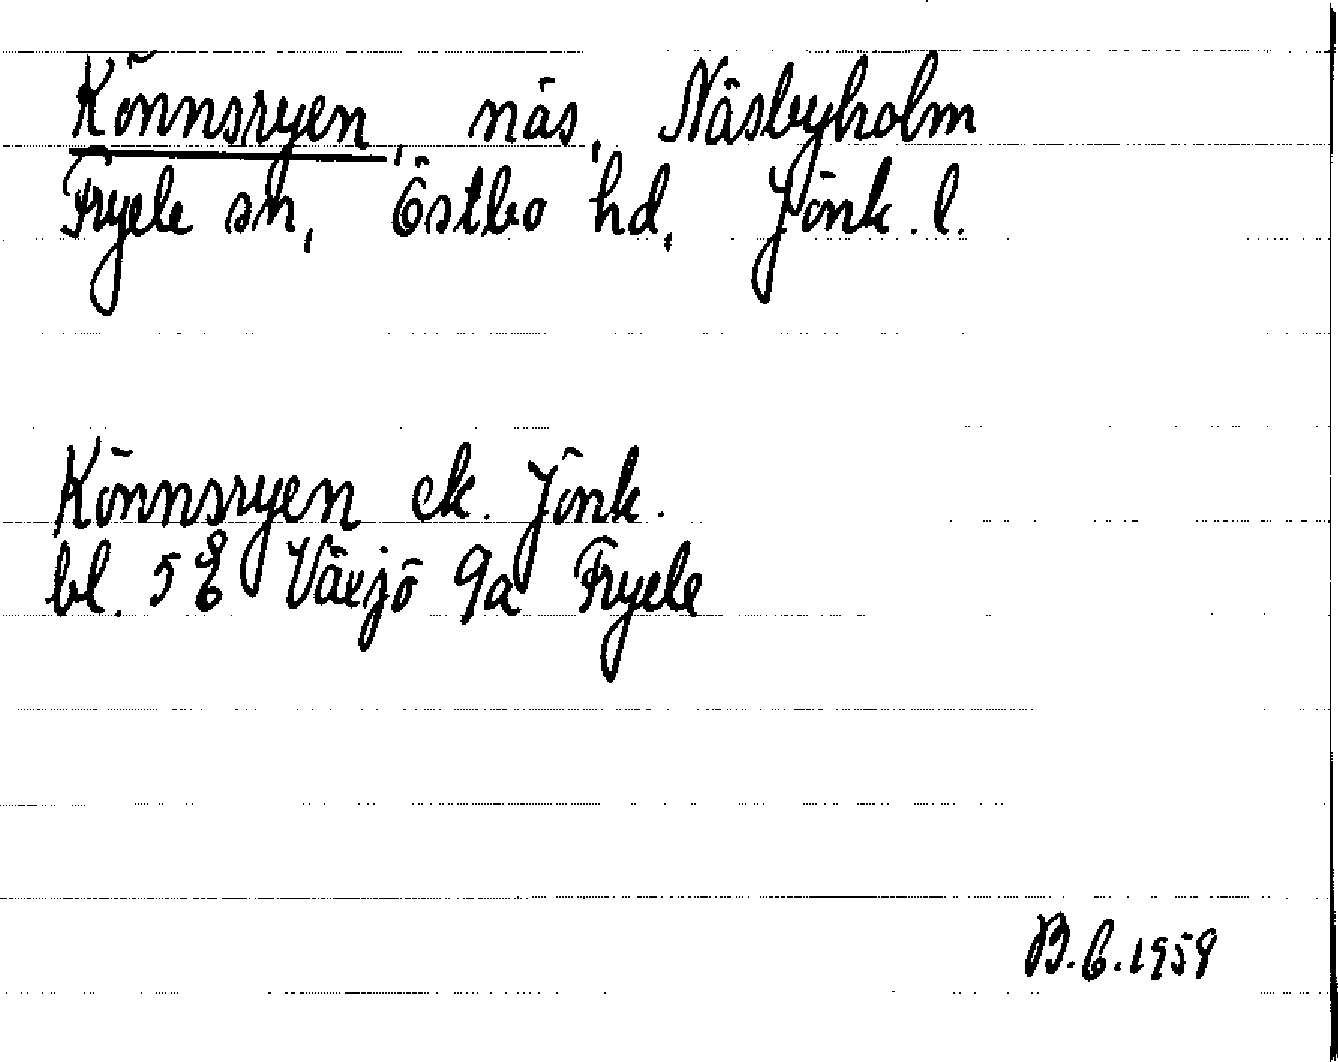 Könnsryen, näs, Näsbyholm
Fryele sn, Östbo hd, Jönk. l.
Könnsryen ek. Jönk.
bl. 5 E Växjö 9a Fryele
B.G.1959